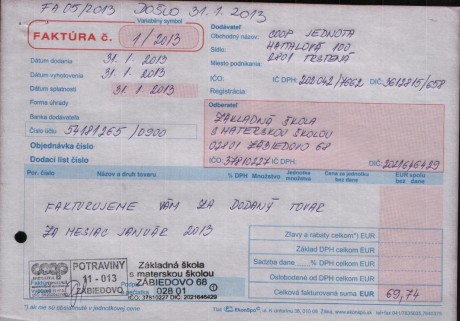 FA 05/2013 DOŠLO 31.1.2013
Variabilný symbol
FAKTÚRA č. 1/2013
Dodávateľ
Obchodný názov: COOP JEDNOTA
Sídlo: HATTALOVA 100
Miesto podnikania: 2801 TRSTENÁ
Dátum dodania 31. 1. 2013
Dátum vyhotovenia 31. 1. 2013
Dátum splatnosti 31. 1. 2013
Forma úhrady
IČO: IČ DPH: DIČ:
Registrácia:
Banka dodávateľa
Číslo účtu /0900
Objednávka číslo
Dodací list číslo
Odberateľ
ZÁKLADNÁ ŠKOLA
S MATERSKOU ŠKOLOU
02801 ZÁBIEDOVO 68
IČO: 37810227 IČ DPH: DIČ: 2021646429
Por. číslo Názov a druh tovaru % DPH Množstvo Jednotka množstva Cena za jednotku bez dane EUR spolu bez dane
FAKTURUJEME VÁM ZA DODANÝ TOVAR
ZA MESIAC JANUÁR 2013
Zľavy a rabaty celkom*) EUR
Základ DPH celkom EUR
Sadzba dane % DPH celkom EUR
Oslobodené od DPH celkom EUR
Celková fakturovaná suma EUR 69,74
coop
POTRAVINY
11-013
ZÁBIEDOVO
Základná škola
s materskou školou
ZÁBIEDOVO 68
028 01
IČO: 37810227 DIČ: 2021646429
EkonSpo